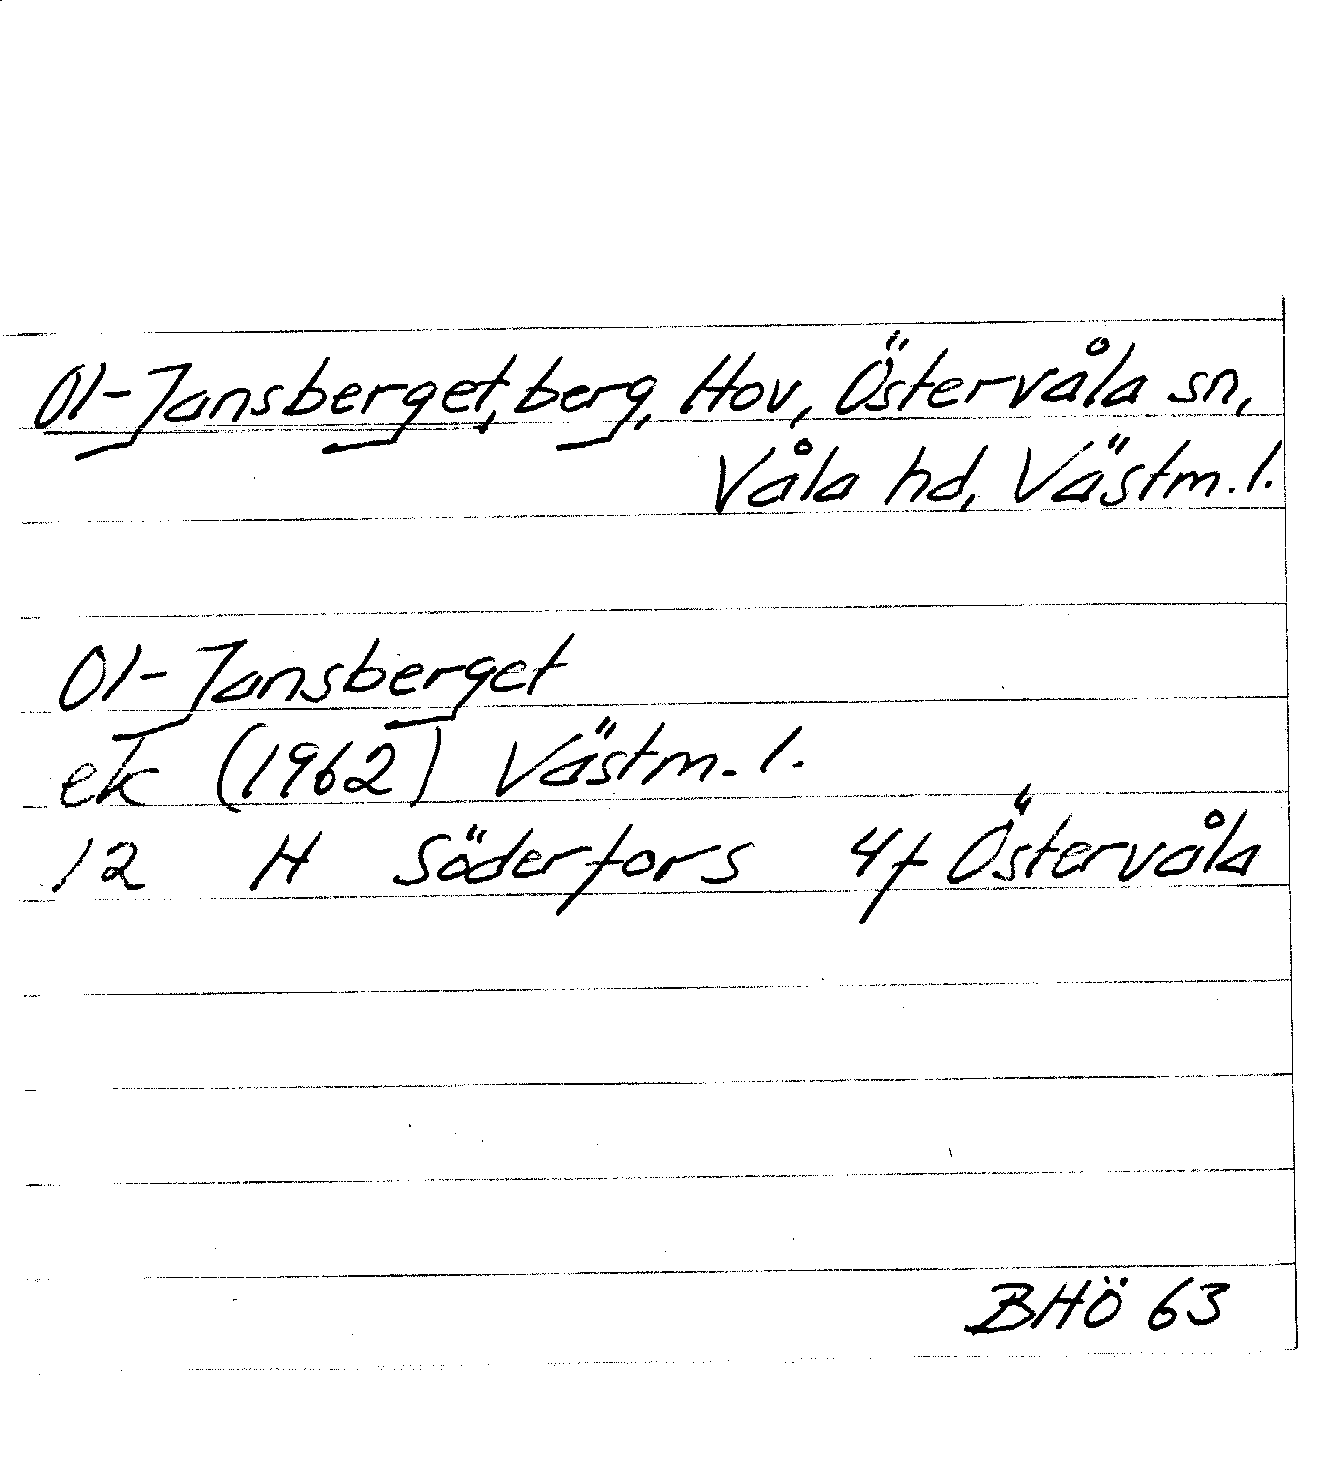 Ol-Jansberget, berg, Hov, Östervåla sn,
Våla hd, Västm. l.
Ol-Jansberget
ek (1962) Västm. l.
12 H Söderfors 4f Östervåla
BHÖ 63